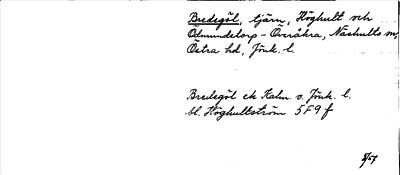 Bredegöl, tjärn, Höghult och
Ödmundetorp - Överåkra, Näshults sn,
Östra hd, Jönk. l.
Bredegöl ek Kalm. o. Jönk. l.
bl. Höghultström 5F9f